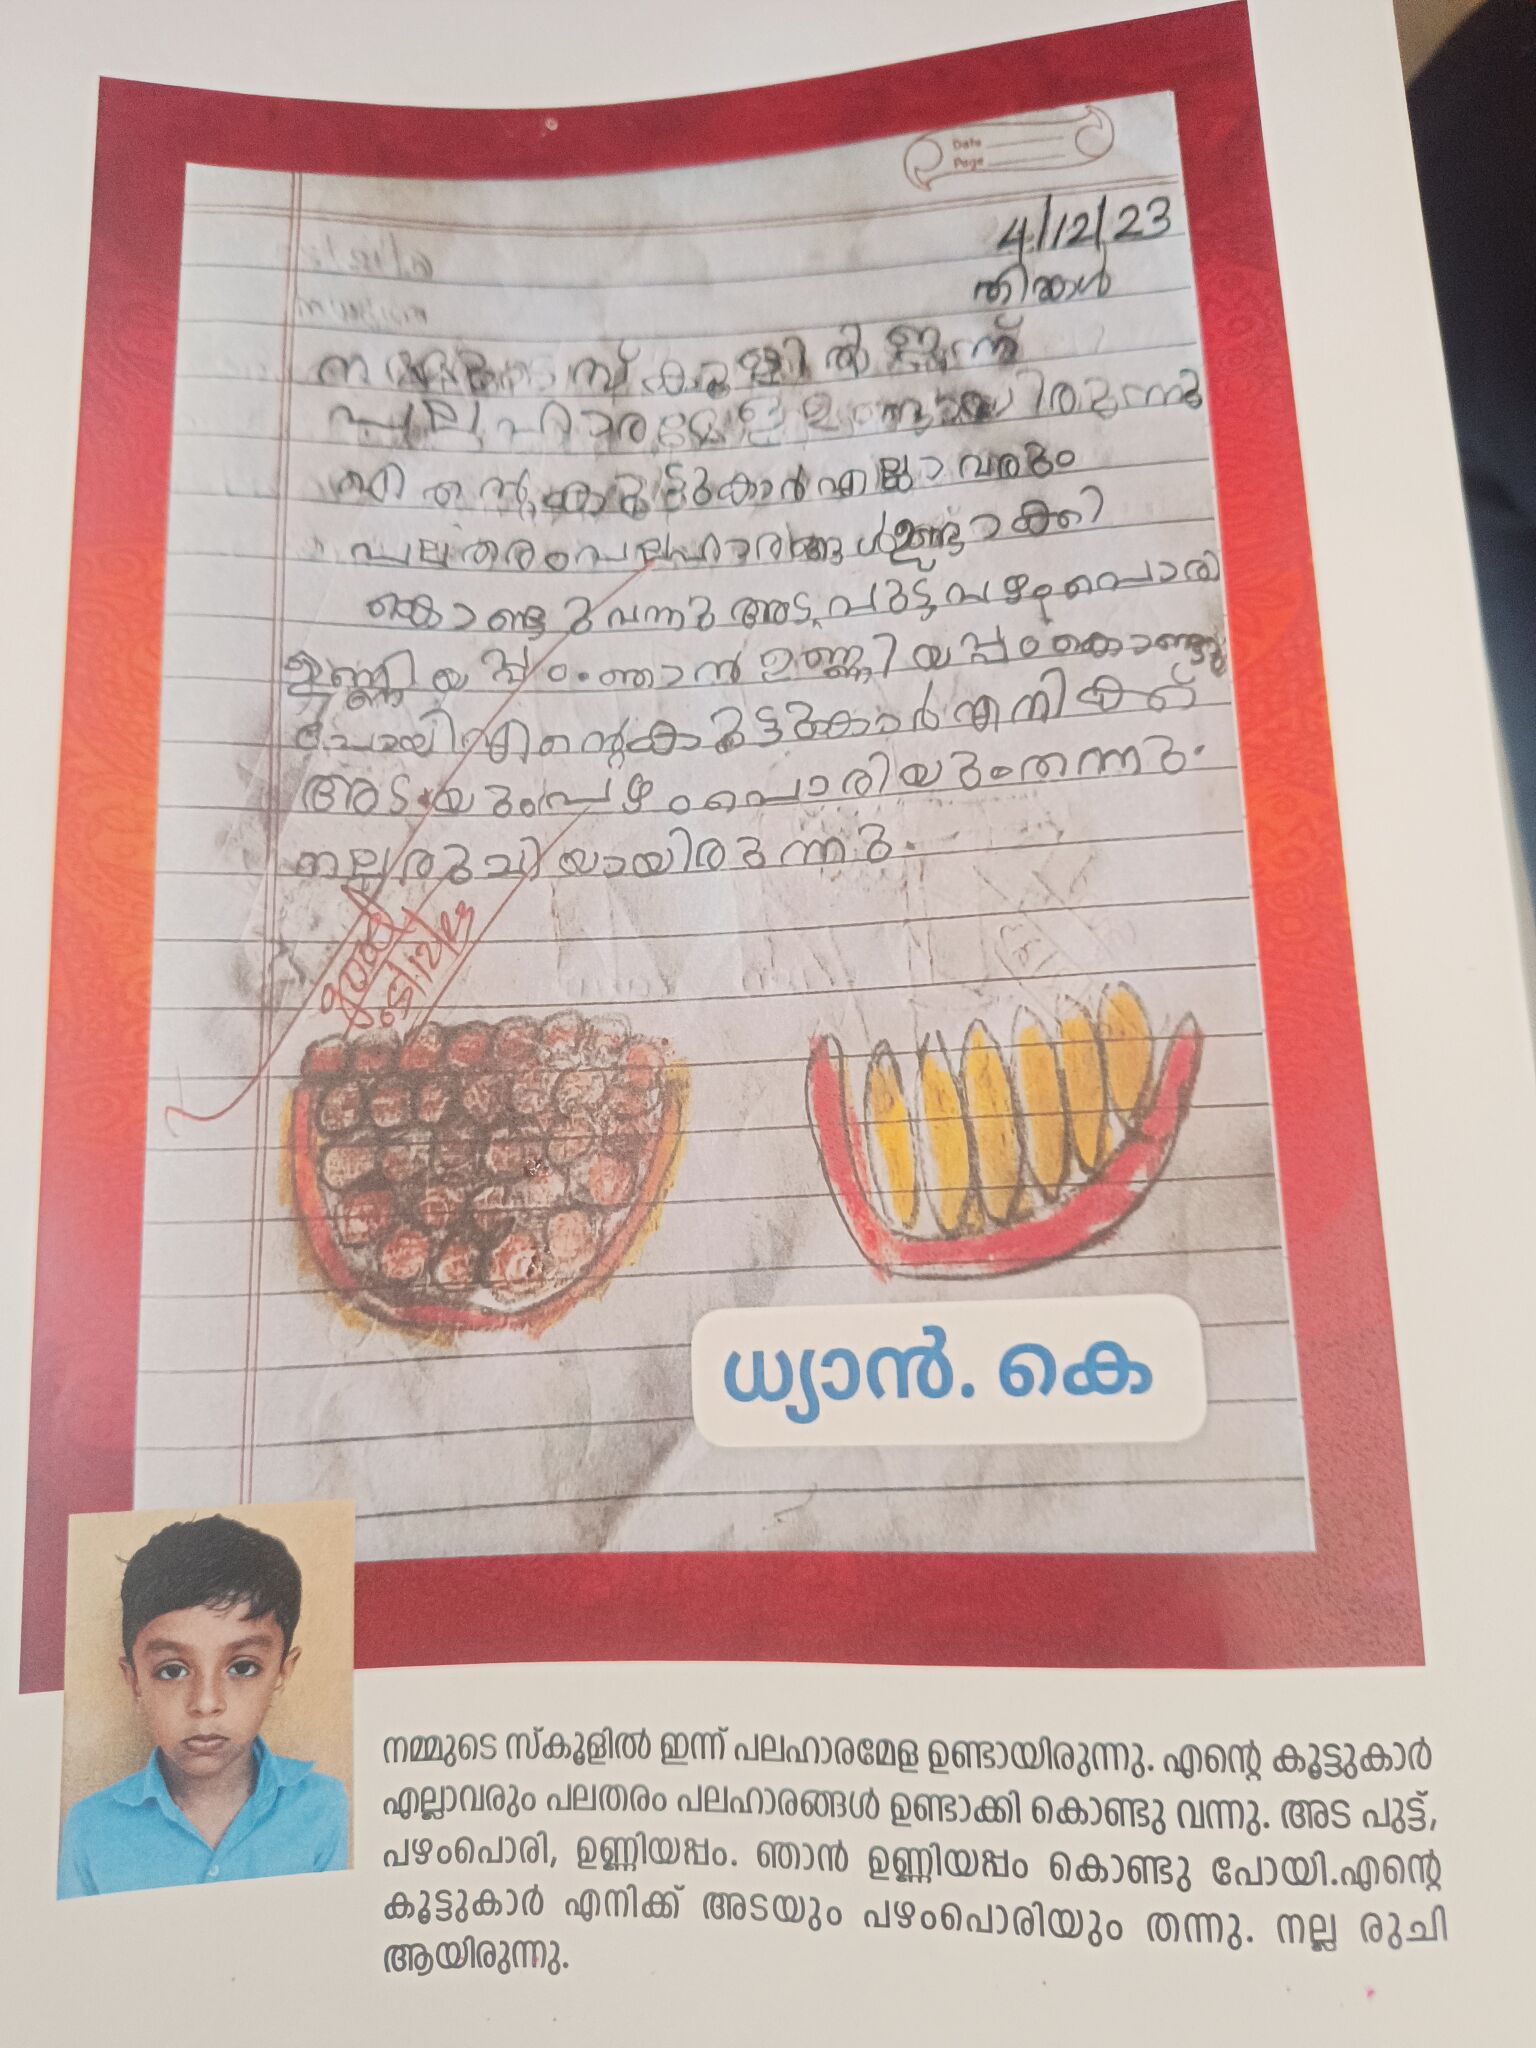 Date
Page
4/12/23
തിങ്കൾ
സ്കൂളിൽ ഇന്ന്
എന്റെ കൂട്ടുകാർ എല്ലാവരും
പലതരം പലഹാരങ്ങൾ ഉണ്ടാക്കി
കൊണ്ടുവന്നു അട, പുട്ട്, പഴംപൊരി
ഉണ്ണിയപ്പം. ഞാൻ ഉണ്ണിയപ്പം കൊണ്ടു
പോയി എന്റെ കൂട്ടുകാർ എനിക്ക്
അടയും പഴംപൊരിയും തന്നു.
നല്ല രുചിയായിരുന്നു.
ധ്യാൻ. കെ
നമ്മുടെ സ്കൂളിൽ ഇന്ന് പലഹാരമേള ഉണ്ടായിരുന്നു. എന്റെ കൂട്ടുകാർ
എല്ലാവരും പലതരം പലഹാരങ്ങൾ ഉണ്ടാക്കി കൊണ്ടു വന്നു. അട പുട്ട്,
പഴംപൊരി, ഉണ്ണിയപ്പം. ഞാൻ ഉണ്ണിയപ്പം കൊണ്ടു പോയി.എന്റെ
കൂട്ടുകാർ എനിക്ക് അടയും പഴംപൊരിയും തന്നു. നല്ല രുചി
ആയിരുന്നു.